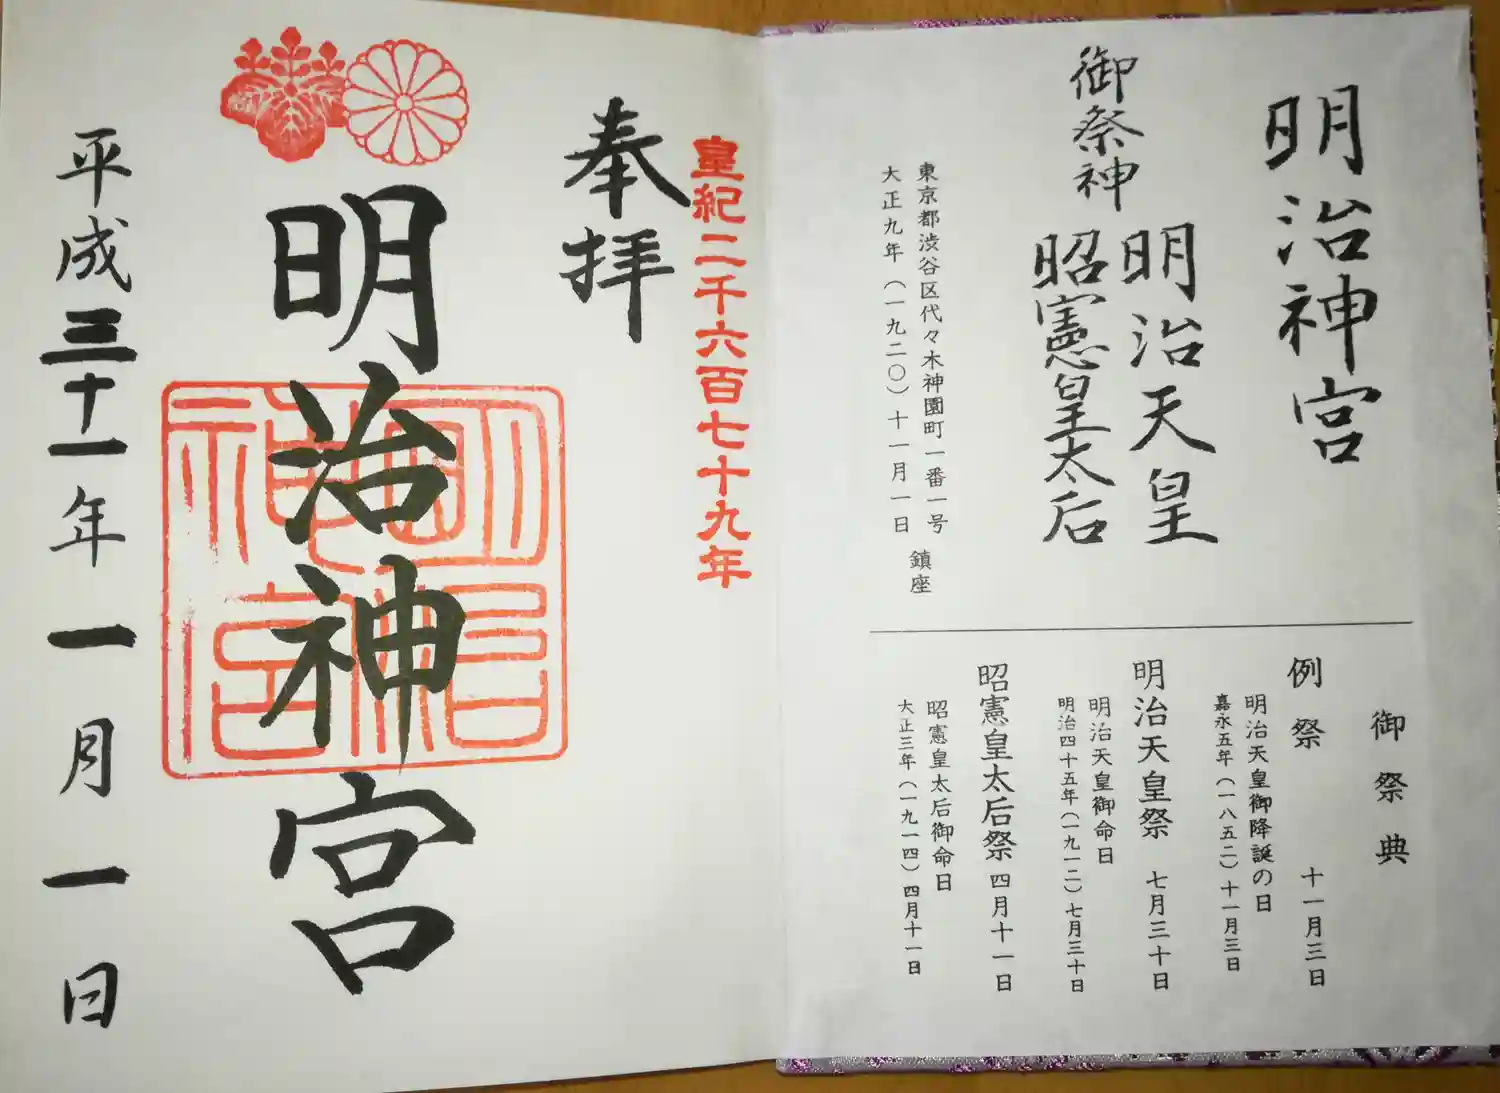 明治神宮
御祭神
明治天皇
昭憲皇太后
東京都渋谷区代々木神園町一番一号
大正九年（一九二〇）十一月一日
鎮座
御祭典
例祭 十一月三日
明治天皇御降誕の日
嘉永五年（一八五二）十一月三日
明治天皇祭 七月三十日
明治天皇御命日
明治四十五年（一九一二）七月三十日
昭憲皇太后祭 四月十一日
昭憲皇太后御命日
大正三年（一九一四）四月十一日
皇紀二千六百七十九年
奉拝
明治神宮
明治神宮
平成三十一年一月一日